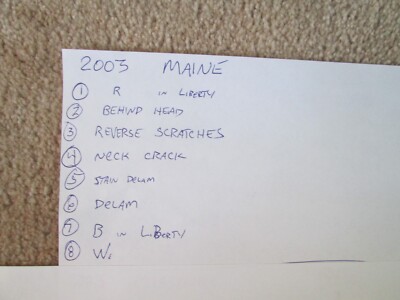 2003 MAINE
1 R IN LIBERTY
2 BEHIND HEAD
3 REVERSE SCRATCHES
4 NECK CRACK
5 STAIN DELAM
6 DELAM
7 B IN LIBERTY
8